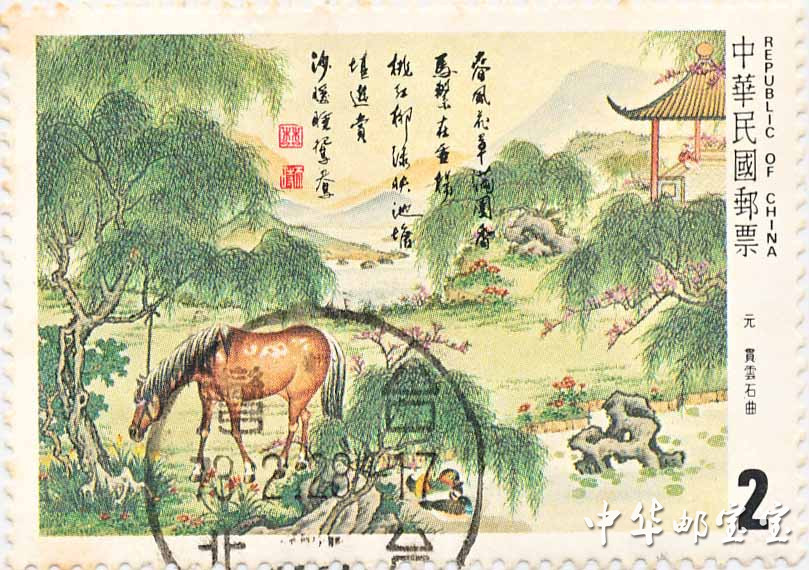 中華民國郵票
REPUBLIC OF CHINA
元 貫雲石曲
春風花草滿園香
馬繫在垂楊
桃紅柳綠映池塘
堪遊賞
沙暖睡鴛鴦
2.28.17
北
2
中华邮宝宝